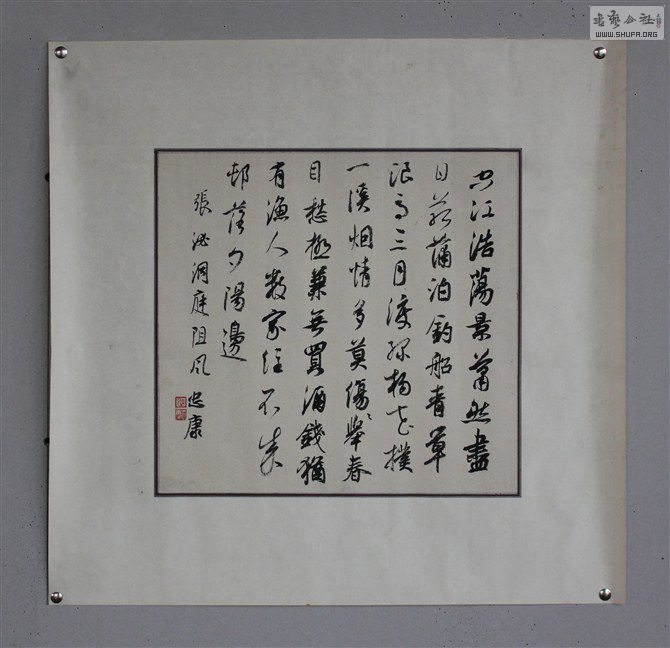 空江浩蕩景蕭然盡
日菰蒲泊釣船青草
浪高三月渡綠楊花撲
一溪烟情多莫傷舉春
目愁極兼無買酒錢猶
有漁人數家住不成
邨落夕陽邊
張泌洞庭阻風
康
書藝公社
WWW.SHUFA.ORG